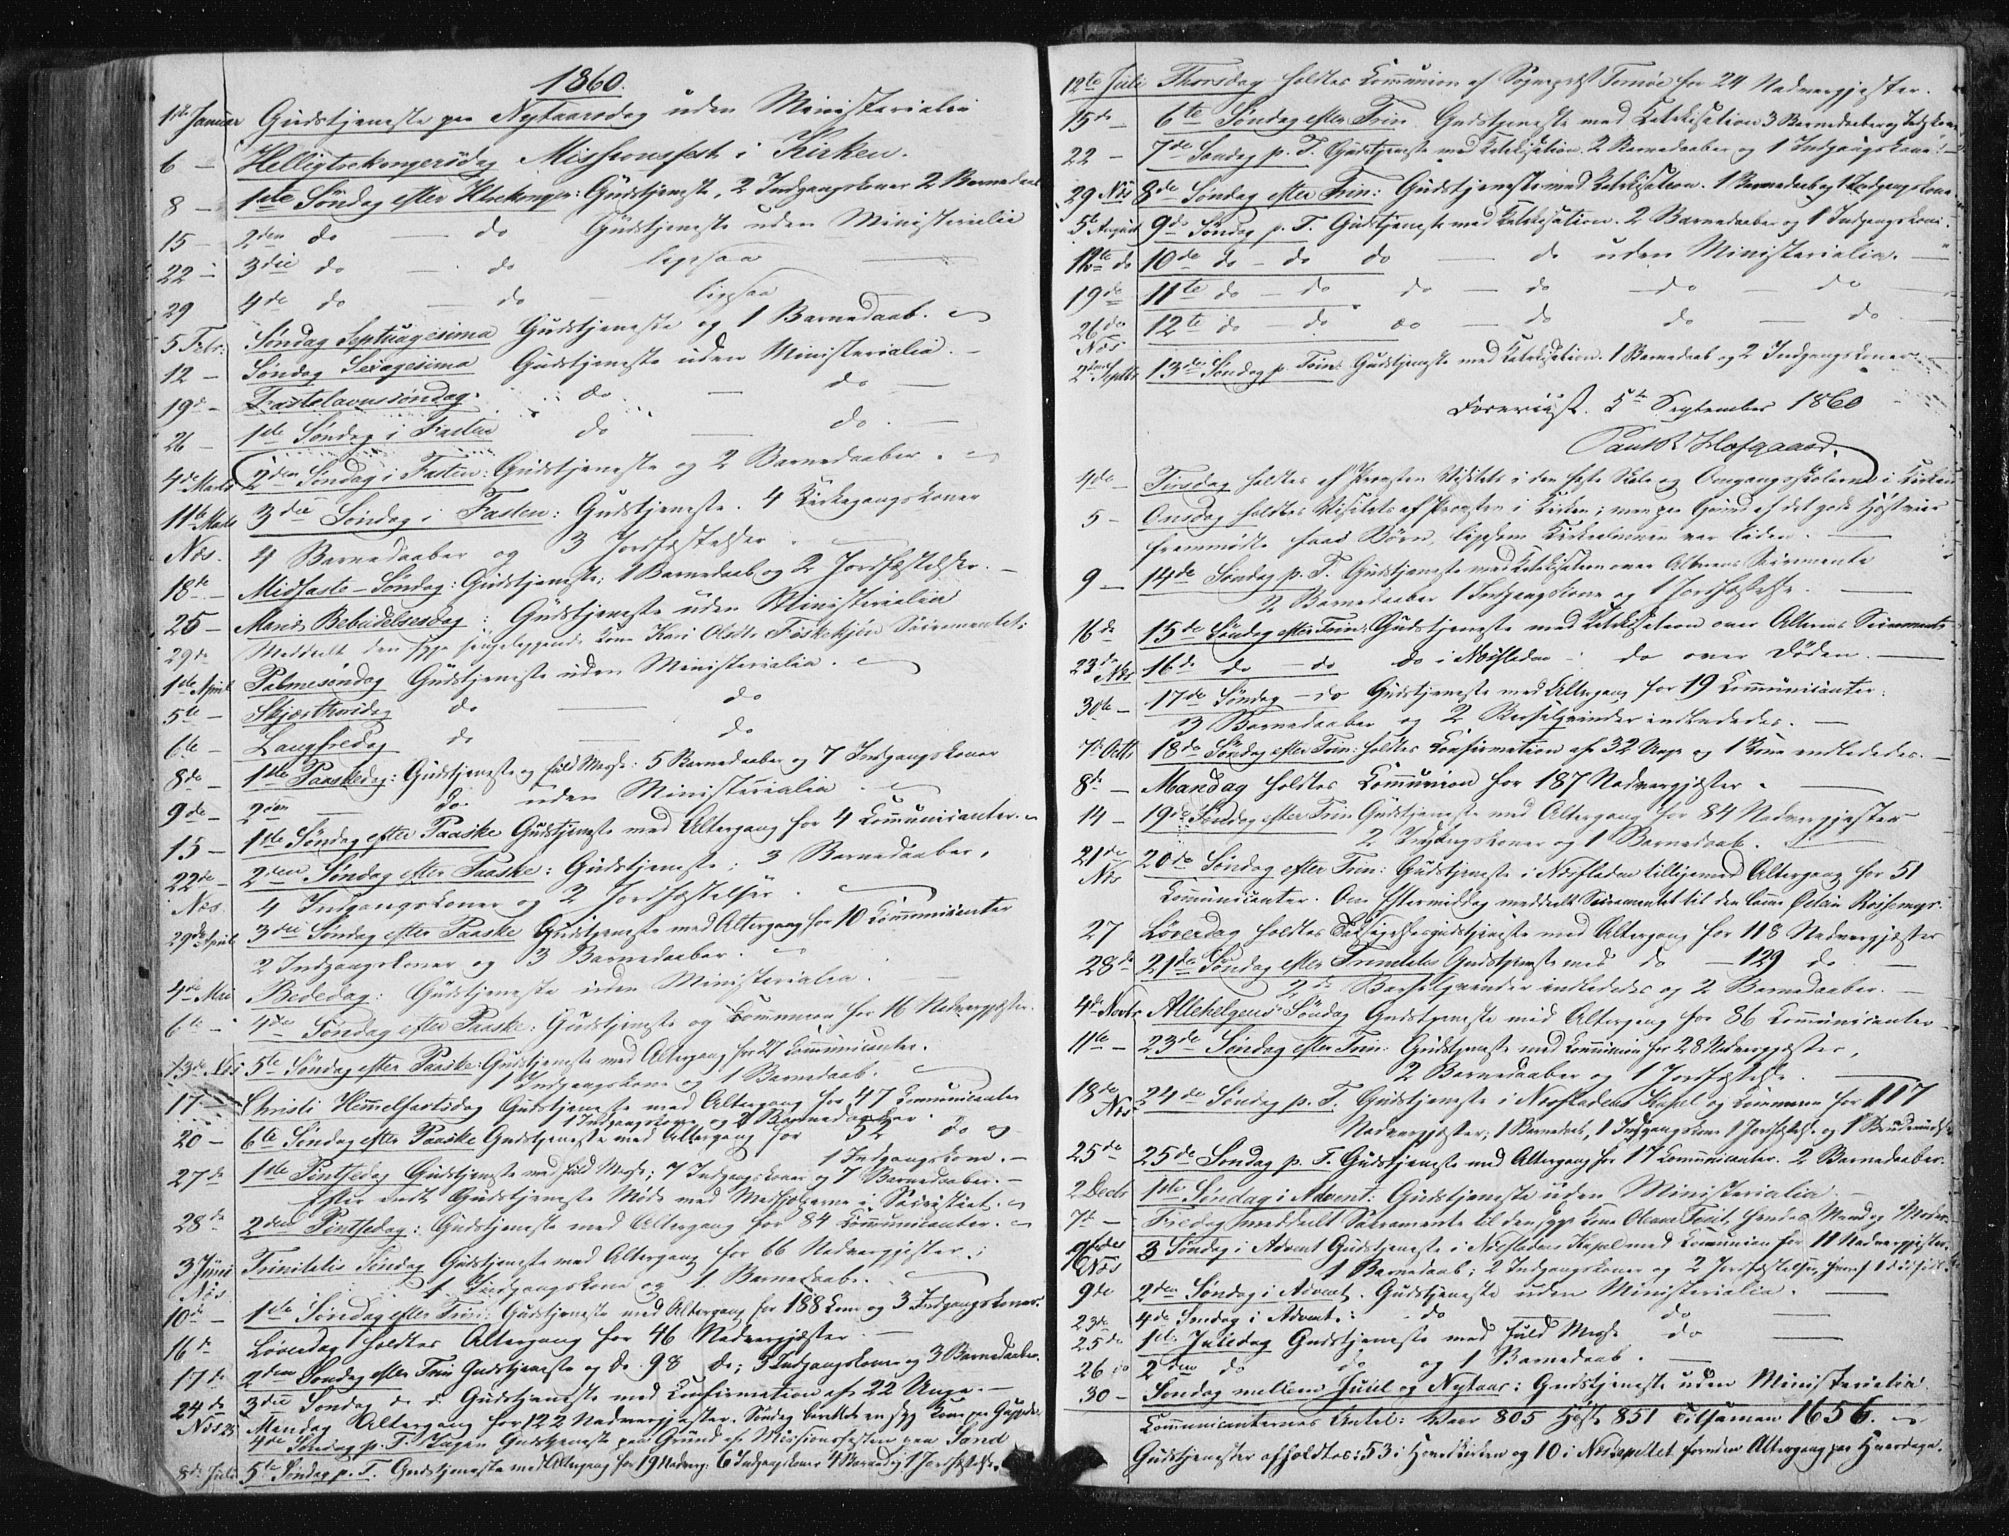 1860.
1ste Januar Gudstjeneste paa Nytaarsdag uden Ministerialia
6 — Helligtrekongersdag Missionsfest i Kirken.
8 — 1ste Søndag efter Htrekonger: Gudstjeneste, 2 Indgangskoner 2 Barnedaab
15 — 2den do — do Gudstjeneste uden Ministerialia
22 — 3die do — do ligesaa —
29 4de do — do — ligesaa —
5 Febr: Søndag Septuagesima Gudstjeneste og 1 Barnedaab.
12 — Søndag Sexagesima Gudstjeneste uden Ministerialia. —
19de — Fastelavnssøndag. do — do —
26 — 1ste Søndag i Fasten do — do. —
4de Marts 2den Søndag i Fasten: Gudstjeneste og 2 Barnedaaber.
11te Marts 3die Søndag i Fasten: Gudstjeneste. 4 Kirkegangskoner
Næs. 4 Barnedaaber og 3 Jordfæstelser.
18de — Midfaste-Søndag: Gudstjeneste; 1 Barnedaab og 2 Jordfæstelser. —
25 — Mariæ Bebudelsesdag: Gudstjeneste uden Ministerialia
29de Meddeelt den syge sengeliggende Kone Kari Olsdtr Fiskekjøn Sacramentet;
1ste April Palmesøndag Gudstjeneste uden Ministerialia.
5te — Skjærthorsdag do — do
6te — Langfredag do — do
8de — 1ste Paaskedag: Gudstjeneste og fuld Messe: 5 Barnedaaber og 7 Indgangskoner
9de — 2den — do. uden Ministerialia.
15 — 1ste Søndag efter Paaske Gudstjeneste med Altergang for 4 Communicanter.
22de — 2den Søndag efter Paaske: Gudstjeneste; 3 Barnedaaber,
Næs. 4 Indgangskoner og 2 Jordfæstelser.
29de April 3die Søndag efter Paaske Gudstjeneste med Altergang for 10 Communicanter
2 Indgangskoner og 3 Barnedaaber.
4de Mai Bededag: Gudstjeneste uden Ministerialia.
6te — 4de Søndag efter Paaske: Gudstjeneste og Communion for 16 Nadvergjæster.
13de Næs 5te Søndag efter Paaske: Gudstjeneste med Altergang for 27 Communicanter.
1 Indgangskone og 1 Barnedaab.
17 — Christi Himmelfartsdag Gudstjeneste med Altergang for 47 Communicanter
1 Indgangskone og 2 Barnedaaber.
20 — 6te Søndag efter Paaske Gudstjeneste med Altergang for 52 do og
1 Indgangskone. —
27de 1ste Pintsedag Gudstjeneste med fuld Messe; 7 Indgangskoner og 7 Barnedaaber. —
Efter endt Gudstjeneste Møde med Medhjelperne i Sacristiet.
28de 2den Pintsedag: Gudstjeneste med Altergang for 84 Communicanter.
3 Juni Trinitatis Søndag Gudstjeneste med Altergang for 66 Nadvergjæster;
Næs 1 Indgangskone og 1 Barnedaab.
10de — 1ste Søndag efter Trin: Gudstjeneste med Altergang for 188 Com og 3 Indgangskoner.
16de Løverdag holdtes Altergang for 46 Nadvergjæster. —
17de 2den Søndag efter Trin Gudstjeneste og do. 98 do; 5 Indgangskoner og 3 Barnedaaber.
24de 3die Søndag do d. Gudstjeneste med Confirmation af 22 Unge. —
Næs 25 Mandag Altergang for 122 Nadvergjæster. Søndag berettet en syg Kone paa
4de Søndag p. T. Ingen Gudstjeneste paa Grund af Missionsfesten paa Sand
8de Juli 5te Søndag p. T. Gudstjeneste med Altergang for 19 Nadverg: 6 Indgangskoner 4 Barned og 1 Jordfæstelse.
12te Juli Thorsdag holdtes Communion af Sognepræst Tomøe for 24 Nadvergjester.
15de — 6te Søndag efter Trin Gudstjeneste med Katekisation 3 Barnedaaber og
22 — 7de Søndag p. T. Gudstjeneste med Katekisation. 2 Barnedaaber og 1 Indgangskone. —
29 Næs 8de Søndag efter Trin: Gudstjeneste med Katekisation. 1 Barnedaab og 1 Indgangskone.
5te August 9de Søndag p. T. Gudstjeneste med Katekisation. 2 Barnedaaber og 1 Indgangskone.
12te do 10de do — do do — do uden Ministerialia. —
19de 11te do — do do — do — do — do —
26de 12te do do do — do do — do —
Næs
2den Septbr 13de Søndag p. Trin: Gudstjeneste med Katekisation. 1 Barnedaab og 2 Indgangskoner.
Foreviist. 5te September 1860
Paul R Hofgaard.
4de — Tirsdag holdtes af Provsten Visitats i den faste Skole og Omgangsskolerne i Kirken
5 — Onsdag holdtes Visitats af Provsten i Kirken; men paa Grund af det gode Høstveir
fremmødte faae Børn, ligesom Kirkealmuen var liden. —
9 — 14de Søndag p. T. Gudstjeneste med Katekisation over Alterens Sacramente
2 Barnedaaber 1 Indgangskone og 1 Jordfæstelse. —
16de 15de Søndag efter Trin: Gudstjeneste med Katekisation over Alterens Sacramente
23de Næs 16de do — do do i Næsstaden — do over Døden. —
30te — 17de Søndag — do Gudstjeneste med Altergang for 19 Communicanter.
3 Barnedaaber og 2 Barselqvinder indlededes. —
7de Octb 18de Søndag efter Trin: holdtes Confirmation af 32 Unge og 1 Kone indlededes. —
8de — Mandag holdtes Communion for 187 Nadvergjæster. —
14 — 19de Søndag efter Trin Gudstjeneste med Altergang for 84 Nadvergjester
2 Indgangskoner og 1 Barnedaab.
21de 20de Søndag efter Trin: Gudstjeneste i Næsstaden tilligemed Altergang for 51
Næs Communicanter. Om Eftermiddag meddeelt Sacramentet til den lamme
27 Løverdag holdtes Gudstjeneste med Altergang for 118 Nadvergjæster
28de 21de Søndag efter Trinitatis Gudstjeneste med do — 129 do. —
2de Barselqvinder indlededes og 2 Barnedaaber. —
4de Novbr Allehelgens Søndag Gudstjeneste med Altergang for 86 Communicanter
11te — 23de Søndag efter Trin: Gudstjeneste med Communion for 28 Nadvergjæster,
2 Barnedaaber og 1 Jordfæstelse. —
18de 24de Søndag p. T. Gudstjeneste i Næsstadens Kapel og Communion for 117
Næs Nadvergjæster, 1 Barnedaab, 1 Indgangskone 1 Jordfæstelse og 1 Brudevielse
25de 25de Søndag p. T. Gudstjeneste med Altergang for 17 Communicanter. 2 Barnedaaber.
2 Decbr 1ste Søndag i Advent: Gudstjeneste uden Ministerialia. —
7de — Fredag meddeelt Sacramente til den syge Kone Hendes Mand og Moder.
16de 3 Søndag i Advent Gudstjeneste i Næsstadens Kapel med Communion for 11 Nadvergjæster.
Næs 1 Barnedaab; 2 Indgangskoner og 2 Jordfæstelser, hvoraf 1
9de 2den Søndag i Advent. Gudstjeneste uden Ministerialia. —
23de 4de Søndag i Advent: do — do —
25de 1ste Juledag Gudstjeneste med fuld Messe do —
26 do 2den do do og 1 Barnedaab. —
30 — Søndag mellem Juul og Nytaar: Gudstjeneste uden Ministerialia.
Communicanternes Antal: Vaar 805 Høst 851 tilsamen 1656.
Gudstjenester afholdtes: 53 i Hovedkirken og 10 i Næskapellet foruden Altergang paa Hverdage.